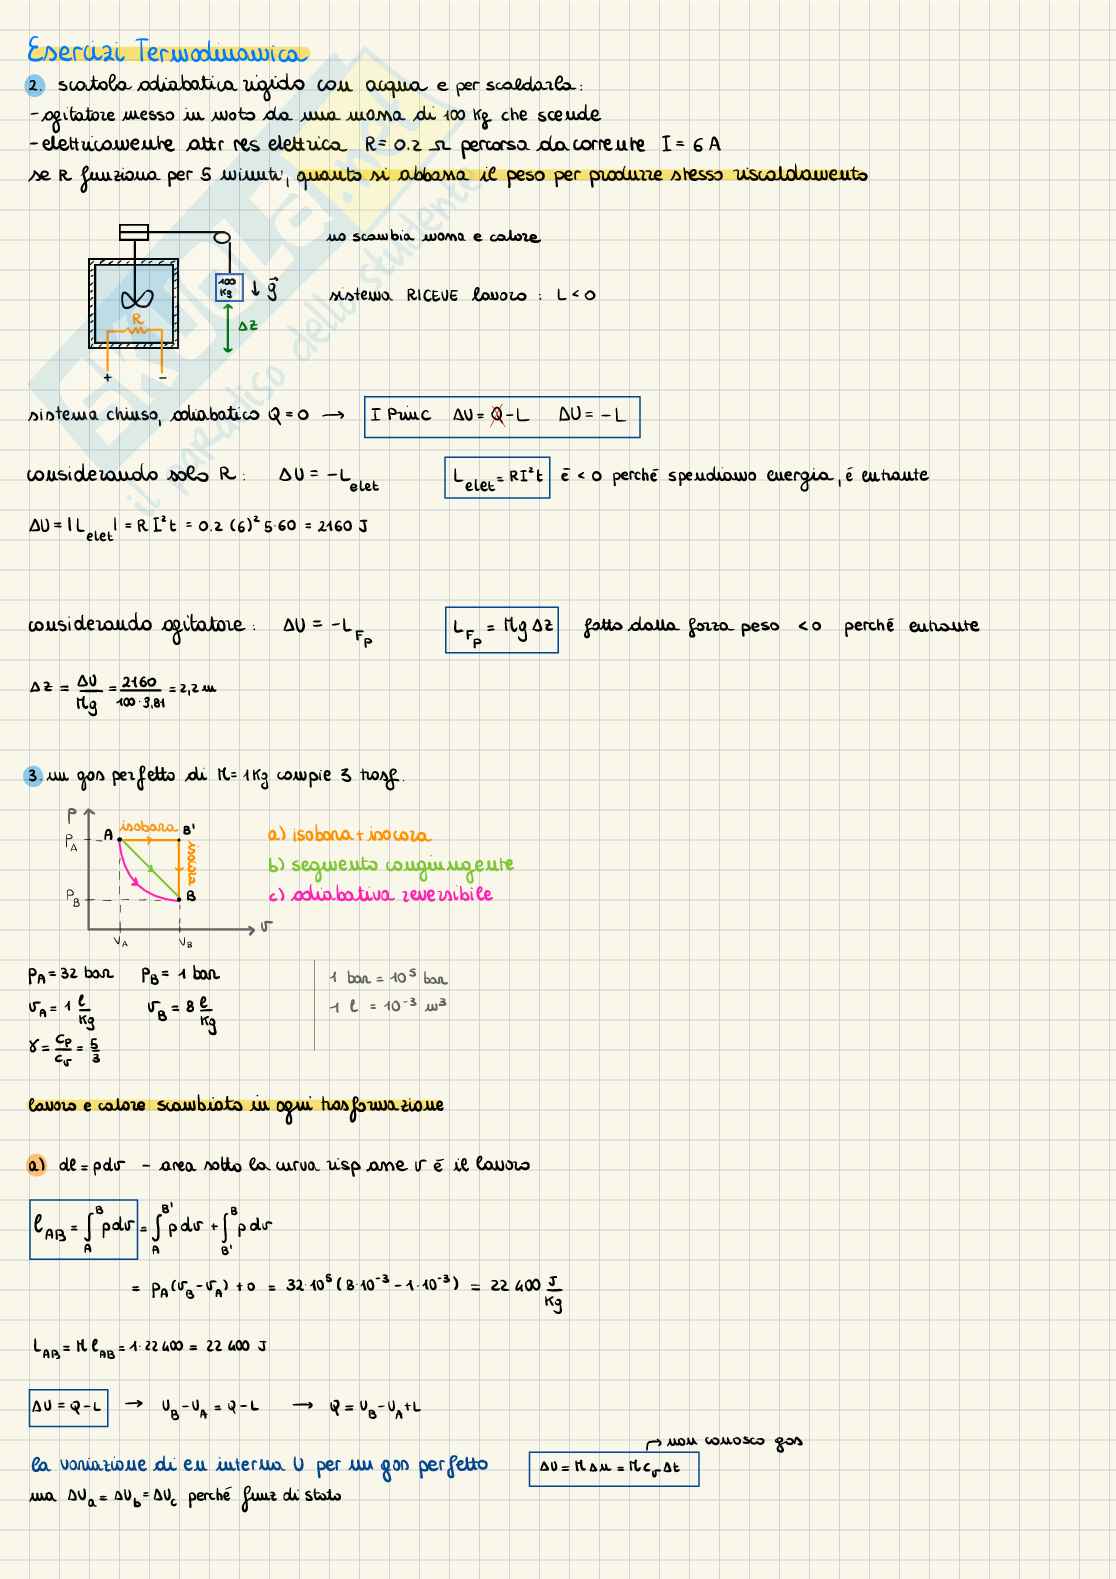 Esercizi Termodinamica
2. scatola adiabatica rigido con acqua e per scaldarla:
- agitatore messo in moto da una massa di 100 Kg che scende
- elettricamente attr res elettrica R= 0.2 Ω percorsa da corrente I = 6 A
se R funziona per 5 minuti, quanto si abbassa il peso per produrre stesso riscaldamento
no scambia massa e calore
100 Kg ↓ g⃗
sistema RICEVE lavoro : L < 0
R
ΔZ
+ −
sistema chiuso, adiabatico Q = 0 → I Princ ΔU = Q - L ΔU = - L
considerando solo R: ΔU = -L_elet L_elet = RI²t é < 0 perché spendiamo energia, é entrante
ΔU = |L_elet| = R I²t = 0.2 (6)² 5·60 = 2160 J
considerando agitatore: ΔU = -L_Fp L_Fp = Mg ΔZ fatto dalla forza peso < 0 perché entrante
ΔZ = ΔU/Mg = 2160/100·9,81 = 2,2 m
3. un gas perfetto di M = 1 Kg compie 3 trasf.
P
isobara
A B'
P_A
isocora
P_B
B
V_A V_B
v
a) isobara + isocora
b) segmento congiungente
c) adiabativa reversibile
P_A = 32 bar P_B = 1 bar
v_A = 1 l/Kg v_B = 8 l/Kg
γ = Cp/Cv = 5/3
1 bar = 10⁵ bar
1 l = 10⁻³ m³
lavoro e calore scambiato in ogni trasformazione
a) dl = pdv - area sotto la curva risp asse v é il lavoro
l_AB = ∫_A^B pdv = ∫_A^B' p dv + ∫_B'^B p dv
= P_A (v_B - v_A) + 0 = 32·10⁵ (8·10⁻³ - 1·10⁻³) = 22 400 J/Kg
L_AB = M l_AB = 1·22 400 = 22 400 J
ΔU = Q - L → U_B - U_A = Q - L → Q = U_B - U_A + L
non conosco gas
la variazione di en interna U per un gas perfetto ΔU = M Δu = M c_v Δt
ma ΔU_a = ΔU_b = ΔU_c perché funz di stato
SKUOLA.net
il paradiso dello studente